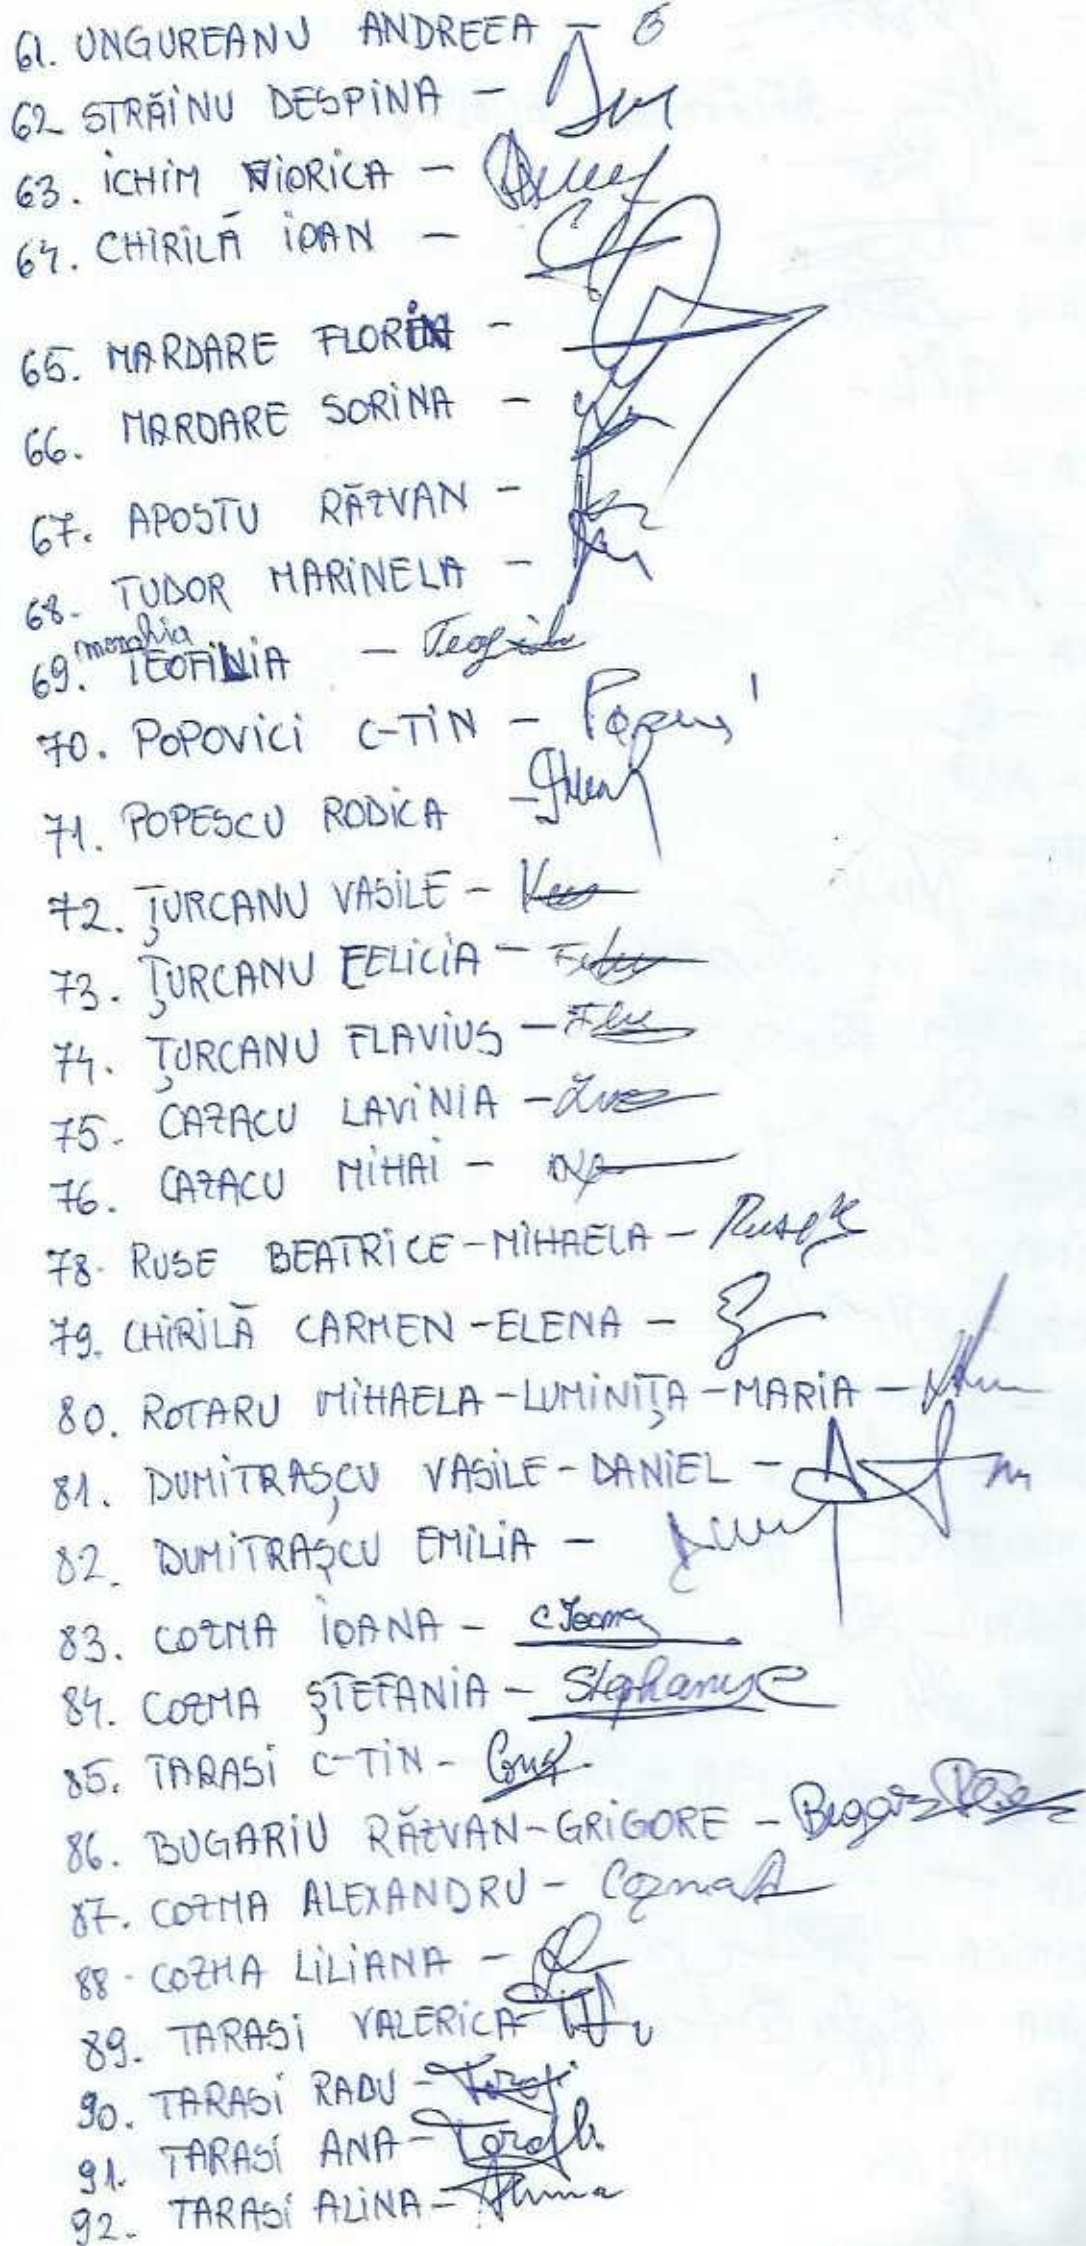 61. UNGUREANU ANDREEA -
62 STRĂINU DESPINA -
63. ICHIM VIORICA -
64. CHIRILĂ IOAN -
65. MARDARE FLORIN -
66. MARDARE SORINA -
67. APOSTU RĂZVAN -
68. TUDOR MARINELA -
69. monahia TEOFILIA - Teofila
70. POPOVICI C-TIN -
71. POPESCU RODICA -
72. ȚURCANU VASILE -
73. ȚURCANU FELICIA -
74. ȚURCANU FLAVIUS -
75. CAZACU LAVINIA -
76. CAZACU MIHAI -
78. RUSE BEATRICE-MIHAELA -
79. CHIRILĂ CARMEN-ELENA -
80. ROTARU MIHAELA-LUMINIȚA-MARIA -
81. DUMITRAȘCU VASILE-DANIEL -
82. DUMITRAȘCU EMILIA -
83. COZMA IOANA - C Ioana
84. COZMA ȘTEFANIA -
85. TARASI C-TIN -
86. BUGARIU RĂZVAN-GRIGORE -
87. COZMA ALEXANDRU - Cozma A
88. COZMA LILIANA -
89. TARASI VALERICA -
90. TARASI RADU -
91. TARASI ANA -
92. TARASI ALINA -